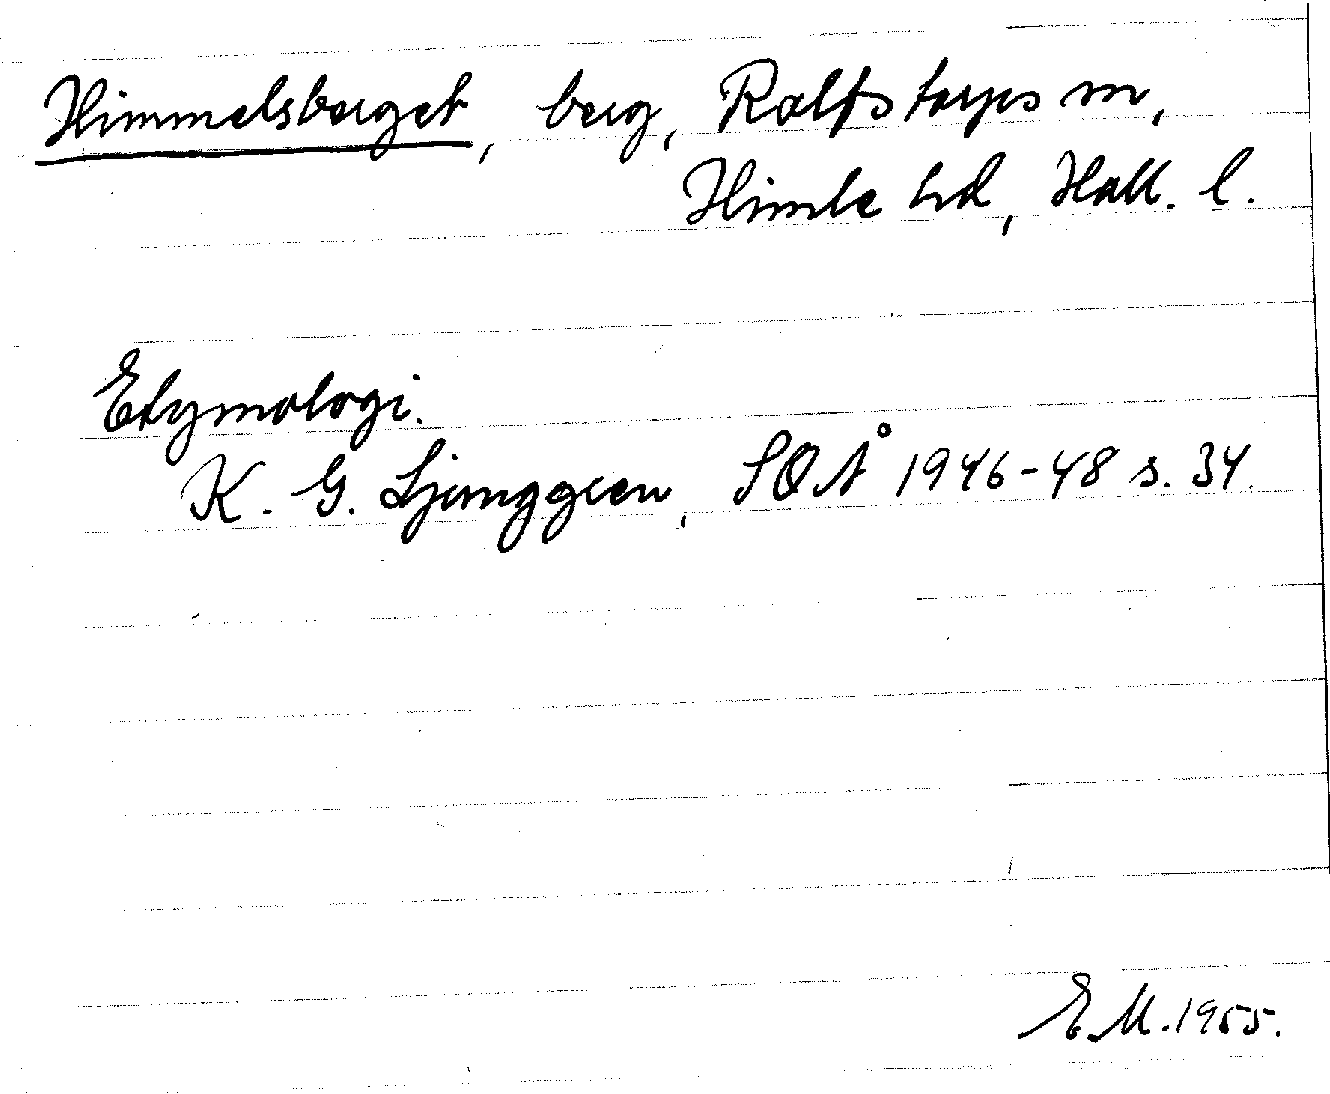 Himmelsberget, berg, Rolfstorps sn,
Himle hd, Hall. l.
Etymologi.
K. G. Ljunggren, SOÅ 1946-48 s. 34.
E.M. 1955.